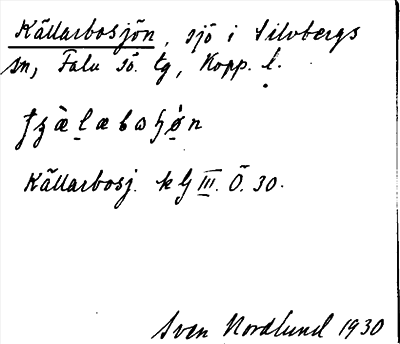 Källarbosjön, sjö i Silvbergs
sn, Falu sö. tg, Kopp. l.
Källarbosj. k bj III. Ö. 30.
Sven Nordlund 1930